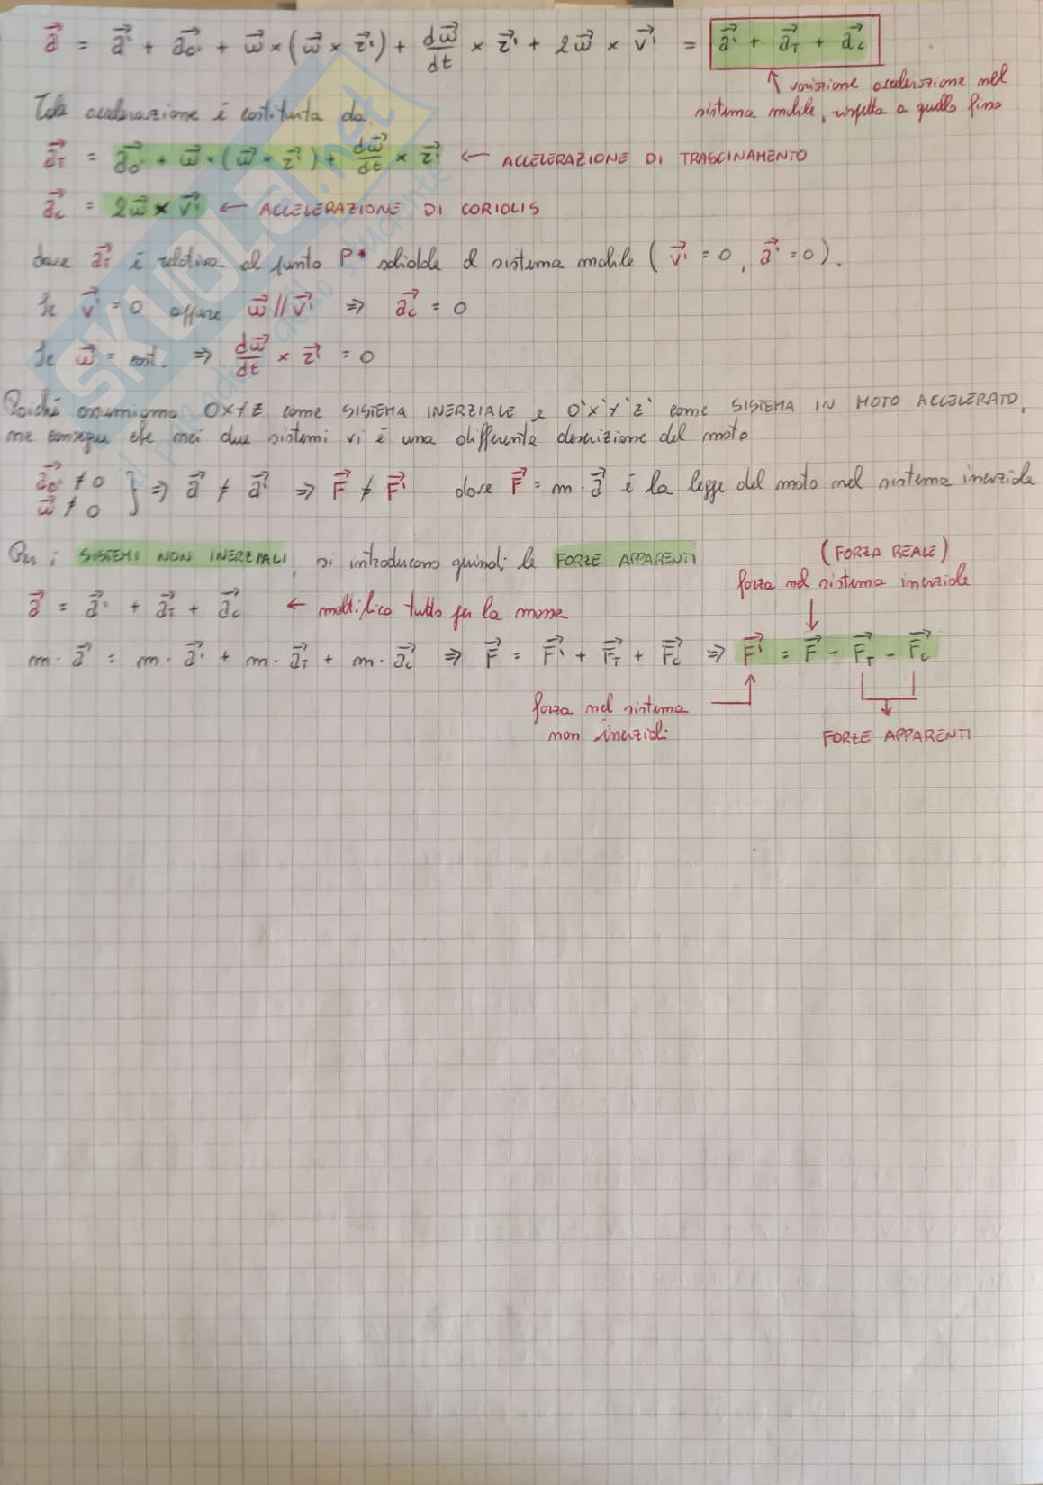 a⃗ = a⃗' + a⃗₀' + ω⃗ × (ω⃗ × r⃗') + dω⃗/dt × r⃗' + 2ω⃗ × v⃗' = a⃗' + a⃗T + a⃗c
↑ variazione accelerazione nel
sistema mobile, rispetto a quello fisso
Tale accelerazione è costituita da:
a⃗T = a⃗₀' + ω⃗ × (ω⃗ × r⃗') + dω⃗/dt × r⃗' ← ACCELERAZIONE DI TRASCINAMENTO
a⃗c = 2ω⃗ × v⃗' ← ACCELERAZIONE DI CORIOLIS
dove a⃗T è relativa al punto P* solidale al sistema mobile ( v⃗' = 0 , a⃗' = 0 ).
Se v⃗' = 0 oppure ω⃗ // v⃗' ⇒ a⃗c = 0
Se ω⃗ = cost. ⇒ dω⃗/dt × r⃗' = 0
Poiché assumiamo OXYZ come SISTEMA INERZIALE e O'X'Y'Z' come SISTEMA IN MOTO ACCELERATO,
ne consegue che nei due sistemi vi è una differente descrizione del moto
a⃗₀' ≠ 0
ω⃗ ≠ 0 } ⇒ a⃗ ≠ a⃗' ⇒ F⃗ ≠ F⃗' dove F⃗ = m · a⃗ è la legge del moto nel sistema inerziale
Per i SISTEMI NON INERZIALI, si introducono quindi le FORZE APPARENTI
(FORZA REALE)
forza nel sistema inerziale
a⃗ = a⃗' + a⃗T + a⃗c ← moltiplico tutto per la massa
m · a⃗ = m · a⃗' + m · a⃗T + m · a⃗c ⇒ F⃗ = F⃗' + F⃗T + F⃗c ⇒ F⃗' = F⃗ - F⃗T - F⃗c
forza nel sistema
non inerziale
FORZE APPARENTI
SKUOLA.net